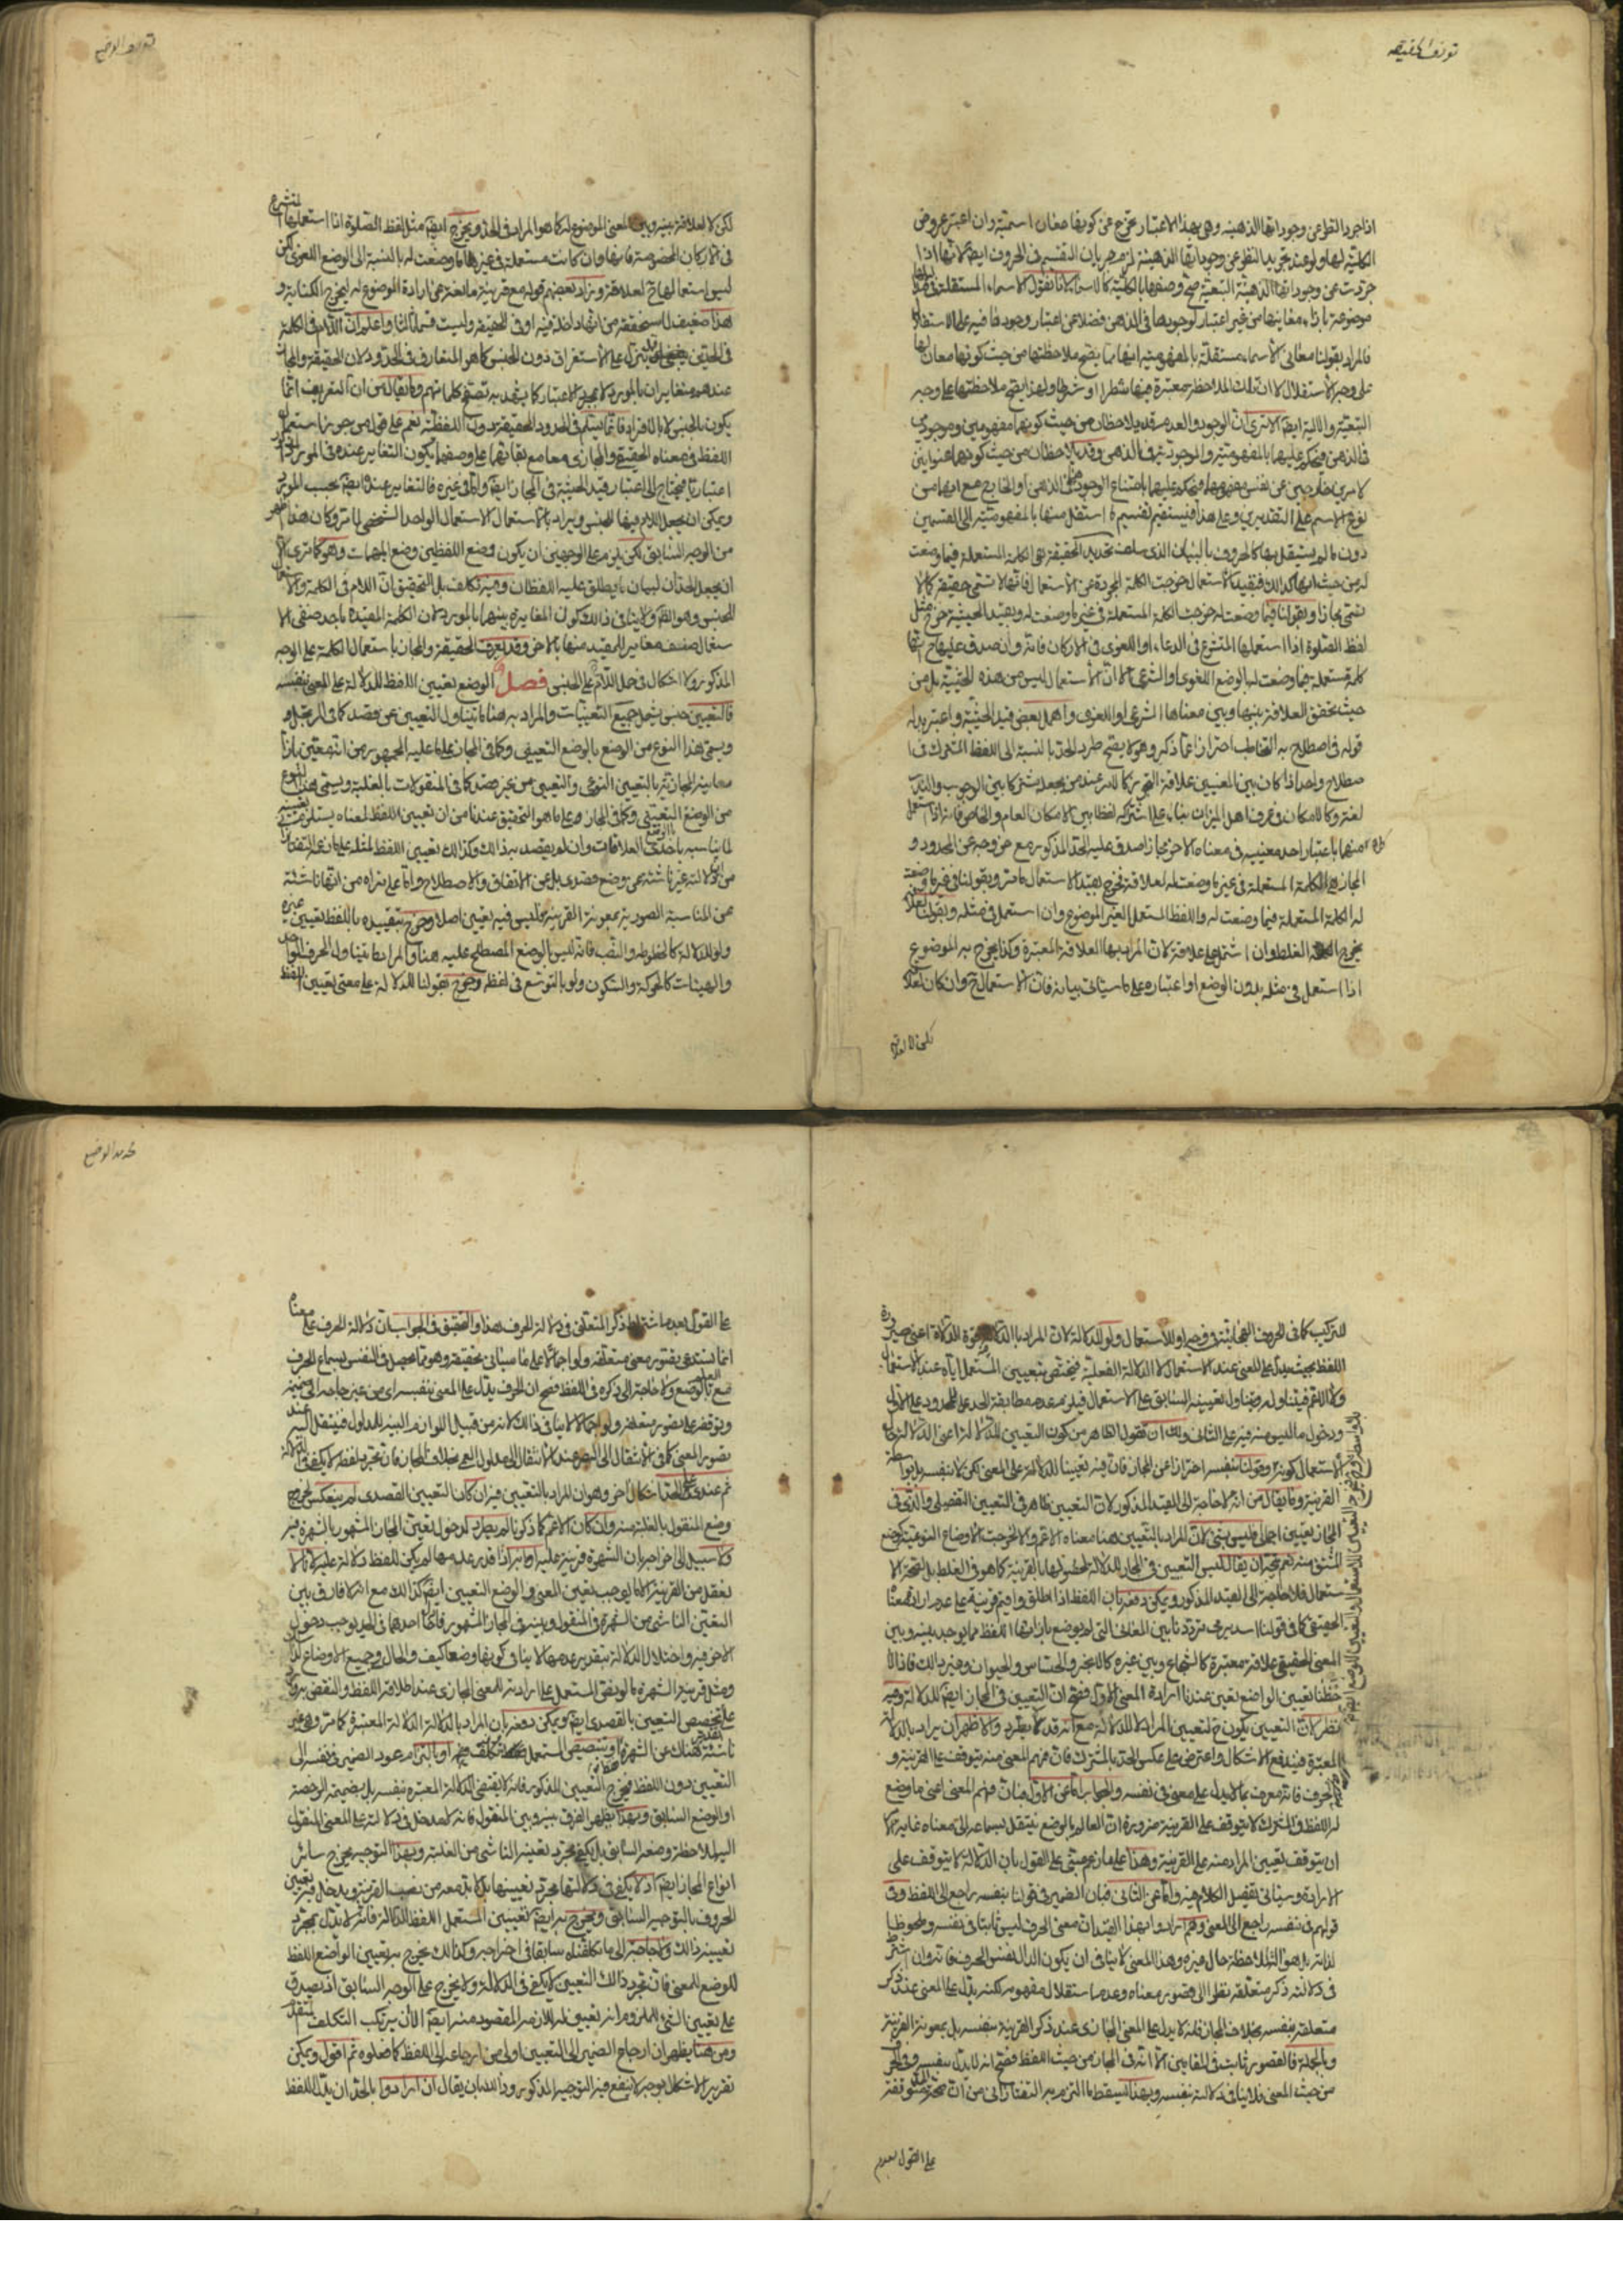 توريف الحقيقة
اذا جرد النظر عن وجوداتها الذهنية وهى بهذا الاعتبار تخرج عن كونها معان اسمية وان اعتبر عروض
الكلية لها ولو عند تجريد النظر عن وجوداتها الذهنية لزم جريان التقسيم فى الحروف ايضا لانها اذا
جردت عن وجوداتها الذهنية التبعية صح وصفها بالكلية كالاسماء لانا نقول الاسماء المستقلة
موضوعة بازاء معانيها من غير اعتبار لوجودها فى الذهن فضلا عن اعتبار وجود خاص فيه على الاستقلال
فالمراد بقولنا معانى الاسماء مستقلة بالمفهومية انها مما يصح ملاحظتها من حيث كونها معان لها
على وجه الاستقلال لا ان تلك الملاحظة معتبرة فيها شطرا او شرطا ولهذا يصح ملاحظتها على وجه
التبعية والالية ايضا الا ترى ان الوجود والعدم قد يلاحظان من حيث كونهما مفهومين وموجودين
فى الذهن فيحكم عليهما بالمفهومية والموجودية فى الذهن وقد يلاحظان من حيث كونهما عنوانين
لامرين خارجين عن نفس مفهومهما فيحكم عليهما بامتناع الوجود فى الذهن او الخارج مع انهما من
نوع الاسم على التقديرين وعلى هذا فيستقيم تقسيم ما استقل منها بالمفهومية الى القسمين
دون ما لم يستقل بها كالحروف بالبيان الذى سلف تحديد الحقيقة هى الكلمة المستعملة فيما وضعت
له من حيث انها كذلك فبقيد الاستعمال خرجت الكلمة المجردة عن الاستعمال فانها لا تسمى حقيقة كما لا
تسمى مجازا وبقولنا فيما وضعت له خرجت الكلمة المستعملة فى غير ما وضعت له وبقيد الحيثية خرج مثل
لفظ الصلوة اذا استعملها المتشرع فى الدعاء او اللغوى فى الاركان فانه وان صدق عليها ح انها
كلمة مستعملة فيما وضعت لها بالوضع اللغوى او الشرعى الا ان الاستعمال ليس من هذه الحيثية بل من
حيث تحقق العلاقة بينها وبين معناها الشرعى او اللغوى واهمل بعض قيد الحيثية واعتبر بدله
قوله فى اصطلاح به التخاطب احترازا عما ذكر وهو لا يصحح طرد الحد بالنسبة الى اللفظ المشترك فى ا
صطلاح واحد اذا كان بين المعنيين علاقة التجوز كالامر عند من يجعله مشتركا بين الوجوب والندب
لغة وكالامكان فى عرف اهل الميزان بناء على اشتراكه لفظا بين الامكان العام والخاص فانه اذا استعمل
منها باعتبار احد معنييه فى معناه الاخر مجازا صدق عليه الحد المذكور مع خروجه عن المحدود و
المجاز هى الكلمة المستعملة فى غير ما وضعت له لعلاقة فخرج بقيد الاستعمال ما مر وبقولنا فى غير ما وضعت
له الكلمة المستعملة فيما وضعت له واللفظ المستعمل الغير الموضوع وان استعمل فى مثله وبقولنا لعلاقة
يخرج الغلط وان اشتمل على علاقة لان المراد بها العلاقة المعتبرة وكذا يخرج به الموضوع
اذا استعمل فى مثله بدون الوضع او اعتباره على ما سيأتى بيانه فان الاستعمال ح وان كان لعلاقة
لكن لا لعلاقة
توريف الوضع
لكن لا لعلاقة بينه وبين المعنى الموضوع له كما هو المراد فى الحد ويخرج ايضا مثل لفظ الصلوة اذا استعملها المتشرع
فى الاركان المخصوصة فانها وان كانت مستعملة فى غير ما وضعت له بالنسبة الى الوضع اللغوى لكن
ليس استعمالها ح لعلاقة وزاد بعضهم قوله مع قرينة مانعة عن ارادة الموضوع له ليخرج الكناية و
هذا ضعيف لما سنحققه من انها داخلة فيه او فى الحقيقة وليست قسما ثالثا واعلم ان اللام فى الكلمة
فى الحدين تنزل على الاستغراق دون الجنس كما هو المتعارف فى الحدود لان الحقيقة والمجاز
عندهم متغايران بالمورد لا بمجرد الاعتبار كما يشهد به تصفح كلماتهم وما يقال من ان التعريف انما
يكون بالجنس لا بالافراد فانما يسلم فى الحدود الحقيقية دون اللفظية نعم على قول من جوز استعمال
اللفظ فى معناه الحقيقى والمجازى معا مع بقائهما على وصفهما يكون التغاير عنده فى المورد
اعتباريا فيحتاج الى اعتبار قيد الحيثية فى المجاز ايضا واما فى غيره فالتغاير عنده ايضا بحسب المورد
ويمكن ان يجعل اللام فيها للجنس ويراد بالاستعمال الاستعمال الواحد الشخصى لما مر وكان هذا اظهر
من الوجه السابق لكن يلزم على الوجهين ان يكون وضع اللفظين وضع المبهمات وهو كما ترى الا
ان يجعل الحدان لبيان ما يطلق عليه اللفظان وفيه تكلف بل التحقيق ان اللام فى الكلمة والاستعمال
للجنس وهو لا ينافى ذلك كون المغايرة بينهما بالمورد لان الكلمة المقيدة باحد صنفى الا
ستعمال صنف مغاير للمقيد منها بالاخر وقد يعرف الحقيقة والمجاز باستعمال الكلمة على الوجه
المذكور ولا اشكال فى حمل اللام على الجنس فصل الوضع تعيين اللفظ للدلالة على المعنى بنفسه
فالتعيين جنس يشمل جميع التعيينات والمراد به هنا ما يتناول التعيين عن قصد كما فى المرتجل
ويسمى هذا النوع من الوضع بالوضع التعيينى وكما فى المجاز على ما عليه الجمهور من انها تعين بازاء
معانيه المجازية بالتعيين النوعى والتعيين من غير قصد كما فى المنقولات بالغلبة ويسمى هذا النوع
من الوضع التعينى وكما فى المجاز على ما هو التحقيق عندنا من ان تعيين اللفظ لمعناه يستلزم تعيينه
لما يناسبه باحدى العلاقات وان لم يقصد به ذلك وكذلك تعيين اللفظ لمثله على ما زعمه التفتازانى
من ان دلالته غير ناشئة عن وضع قصدى بل عن الاتفاق والاصطلاح واما على ما نراه من انها ناشئة
عن المناسبة الصورية بمعونة القرينة فليس فيه تعيين اصلا وخرج بتقييده باللفظ تعيين غيره
ولو للدلالة كالخطوط والنصب فانه ليس بالوضع المصطلح عليه هنا والمراد ما يتناول الحرف الواحد
والهيئات كالحركة والسكون ولو بالتوسع فى لفظه وخرج بقولنا للدلالة على معنى تعيين اللفظ
للتركيب كما فى الحروف التهجائية وقصره او للاستعمال ولو للدلالة لان المراد بالدلالة قوة الدلالة اعنى صيرورة
اللفظ بحيث يدل على المعنى عند الاستعمال لا الدلالة الفعلية فيختص بتعيين المستعمل اياه عند الاستعمال
ودخول ما ليس منه فيه على الثانى ولك ان تقول الظاهر من كون التعيين للدلالة اعنى الدلالة حال
الاستعمال كونه وبقولنا بنفسه احترازا عن المجاز فان فيه تعيينا للدلالة على المعنى لكن لا بنفسه بل بواسطة
القرينة وما يقال من انه لا حاجة الى القيد المذكور لان التعيين ظاهر فى التعيين التفصيلى والذى فى
المجاز تعيين اجمالى فليس بشىء لان المراد بالتعيين هنا معناه الاعم والا لخرجت الاوضاع النوعية كوضع
المشتق منه نعم يتجه ان يقال ليس التعيين فى المجاز للدلالة لحصولها بالقرينة كما هو فى الغلط بل لصحة الا
ستعمال فلا حاجة الى القيد المذكور ويمكن دفعه بان اللفظ اذا اطلق واقيم قرينة على عدم ارادة معناه
الحقيقى كما فى قولنا اسد يرمى تردد ما بين المعانى التى لم يوضع بازائها اللفظ مما يوجد بينه وبين
المعنى الحقيقى علاقة معتبرة كالشجاع وبين غيره كالابخر والحساس والحيوان وغير ذلك فاذا لا
حظنا تعيين الواضع تعين عندنا ارادة المعنى الاول فصح ان التعيين فى المجاز ايضا للدلالة وفيه
نظر لان التعيين يكون ح لتعيين المراد لا للدلالة مع انه قد لا يطرد والاظهر ان يراد بالدلالة
المعتبرة فيندفع الاشكال واعترض على عكس الحد بالمشترك فان فهم المعنى منه يتوقف على القرينة و
بالحرف فانه معرف بما لا يدل على معنى فى نفسه والجواب اما عن الاول فبان فهم المعنى اعنى ما وضع
له اللفظ فى المشترك لا يتوقف على القرينة ضرورة ان العالم بالوضع ينتقل بسماعه الى معناه غاية الامر
ان يتوقف تعيين المراد منه على القرينة وهذا على ما زعم مبنى على القول بان الدلالة لا يتوقف على
الارادة وسيأتى تفصيل الكلام فيه واما عن الثانى فبان الضمير فى قولنا بنفسه راجع الى اللفظ وفى
قولهم فى نفسه راجع الى المعنى وهم ارادوا بهذا القيد ان معنى الحرف ليس ثابتا فى نفسه وملحوظا
لذاته بل هو الة لملاحظة حال غيره وهذا المعنى لا ينافى ان يكون الدال نفس الحرف فانه وان اشترط
فى دلالته ذكر متعلقه نظرا الى قصور معناه وعدم استقلال مفهومه لكنه يدل على المعنى عند ذكر
متعلقه بنفسه بخلاف المجاز فانه لا يدل على المعنى المجازى عند ذكر القرينة بنفسه بل بمعونة القرينة
وبالجملة فالقصور ثابت فى المقامين الا انه فى المجاز من حيث اللفظ فصح انه لا يدل بنفسه وفى الحرف
من حيث المعنى فلا ينافى دلالته بنفسه وبهذا يسقط ما التزم به التفتازانى من ان متوقفة
على القول بعدم
تحديد الوضع
على القول بعدم اشتراط ذكر المتعلق فى دلالة الحرف هذا والتحقيق فى الجواب ان دلالة الحرف على معناه
انما يستدعى تصور معنى متعلقه ولو اجمالا على ما سيأتى تحقيقه وهو مما يحصل فى النفس بسماع الحرف
مع العلم بالوضع ولا حاجة الى ذكره فى اللفظ فصح ان الحرف يدل على المعنى بنفسه اى من غير حاجة الى ضميمة
وتوقفه على تصور متعلقه ولو اجمالا لا ينافى ذلك لانه من قبيل اللوازم البينة للمدلول فينتقل اليه عند
تصور المعنى كما فى الانتقال الى البصر عند الانتقال الى مدلول العمى بخلاف المجاز فان مجرد لفظه لا يكفى فى الدلالة
ثم عندى على الحد اشكال اخر وهو ان المراد بالتعيين فيه ان كان التعيين القصدى لم ينعكس لخروج
وضع المنقول بالغلبة منه وان كان الاعم كما ذكرنا لم يطرد لدخول تعيين المجاز المشهور بالشهرة فيه
ولا سبيل الى اخراجه بان الشهرة قرينة عليه او انه اذا قدر عدمها لم يكن للفظ دلالة عليه لانا لا
نعقل من القرينة الا ما يوجب تعيين المعنى والوضع التعينى ايضا كذلك مع انه لا فارق بين
التعيين الناشى من الشهرة فى المنقول وبينه فى المجاز المشهور فادخال احدهما فى الحد يوجب دخول
الاخر فيه واختلال الدلالة بتقدير عدمها لا ينافى كونها وضعا كيف والحال فى جميع الاوضاع كذلك
ومثل قرينة الشهرة ما لو نص المستعمل على ارادته للمعنى المجازى عند اطلاقه اللفظ والنقض به وارد
على تخصيص التعيين بالقصدى ايضا ويمكن دفعه بان المراد بالدلالة الدلالة المعتبرة كما مر وهى غير
ناشئة هناك عن الشهرة وتنصيص المستعمل او بالتزام عود الضمير فى نفسه الى
التعيين دون اللفظ فيخرج التعيين المذكور فانه لا يقتضى الدلالة المعتبرة بنفسه بل بضميمة الرخصة
او الوضع السابق وبهذا يظهر الفرق بينه وبين المنقول فانه لا مدخل فى دلالته على المعنى المنقول
اليه لملاحظة وضعه السابق بل يكفى مجرد تعيينه الناشى من الغلبة وبهذا التوجيه يخرج سائر
انواع المجاز ايضا اذ لا يكفى فى دلالتها مجرد تعيينها بل لا بد معه من نصب القرينة ويدخل فيه تعيين
الحروف بالتوجيه السابق ويخرج به ايضا تعيين المستعمل اللفظ للدلالة فانه لا يدل بمجرد
تعيينه ذلك ولا حاجة الى ما تكلفناه سابقا فى اخراجه وكذلك يخرج به تعيين الواضع اللفظ
للوضع للمعنى فان مجرد ذلك التعيين لا يكفى فى الدلالة ولا يخرج على الوجه السابق اذ يصدق
على تعيين الشىء للملزوم انه تعيين له للازمه المقصود منه ايضا الا ان يرتكب التكلف المتقدم
ومن هنا يظهر ان ارجاع الضمير الى التعيين اولى من ارجاعه الى اللفظ كما فعلوه ثم اقول ويمكن
تقرير الاشكال بوجه لا ينفع فيه التوجيه المذكور وذلك بان يقال ان ارادوا بالحد ان يدل اللفظ